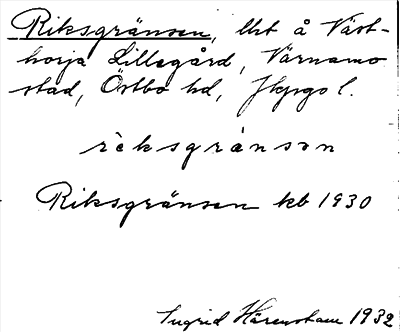 Riksgränsen, lht å Väst-
horja Lillegård, Värnamo
stad, Östbo hd, Jkpgs l.
rìksgrànsən
Riksgränsen kb 1930
Ingrid Härenstam 1932